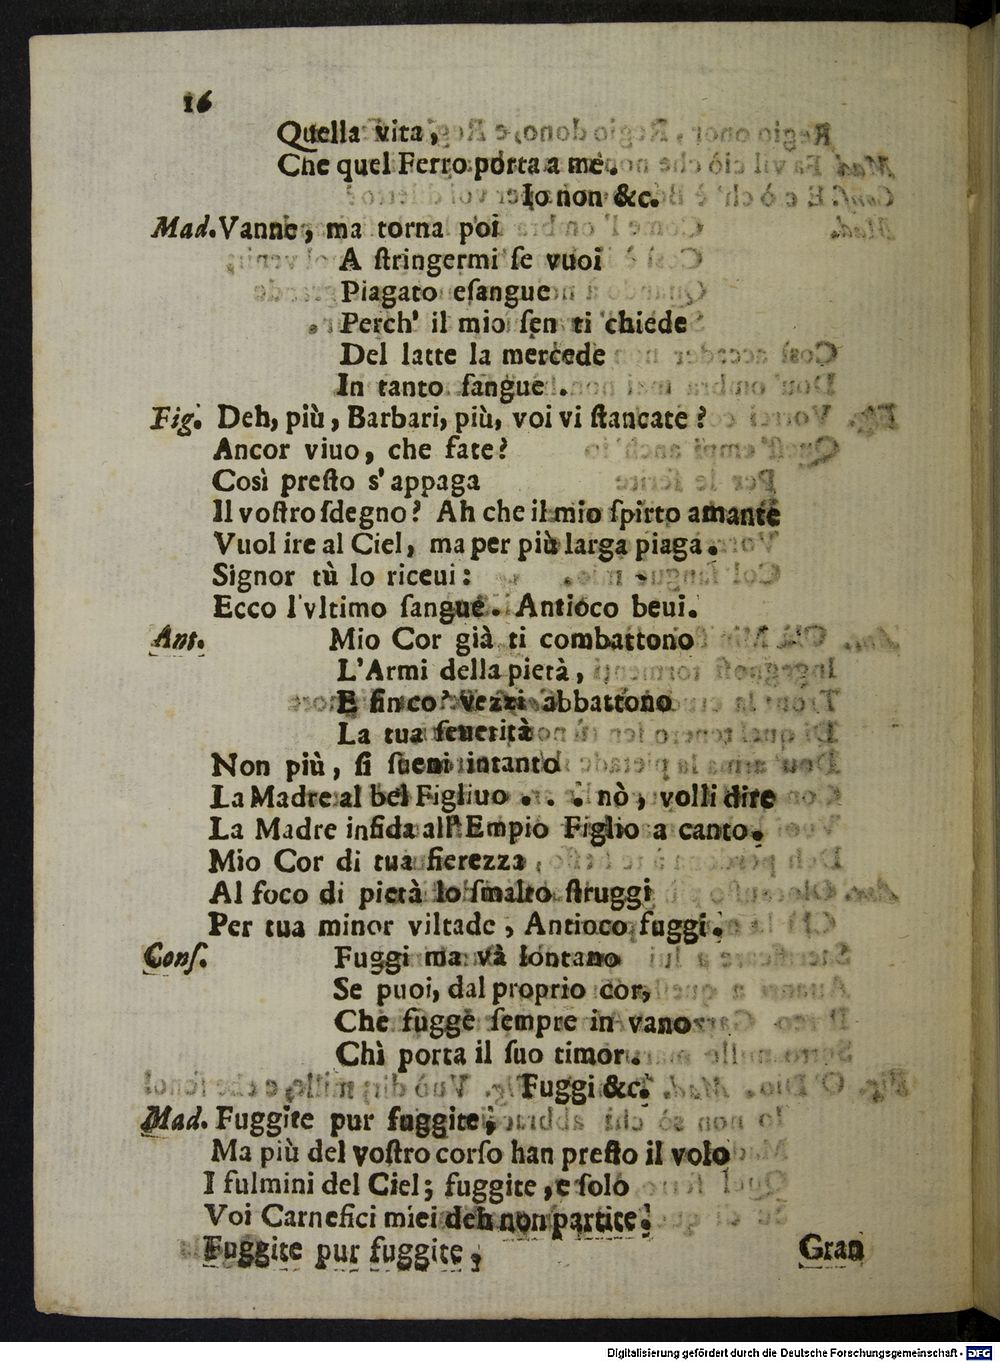 16
Quella vita,
Che quel Ferro porta a me.
Io non &c.
Mad. Vanne, ma torna poi
A ſtringermi ſe vuoi
Piagato eſangue
Perch' il mio ſen ti chiede
Del latte la mercede
In tanto ſangue.
Fig. Deh, più, Barbari, più, voi vi ſtancate?
Ancor viuo, che fate?
Così preſto s'appaga
Il voſtro ſdegno? Ah che il mio ſpirto amante
Vuol ire al Ciel, ma per più larga piaga.
Signor tù lo riceui:
Ecco l'vltimo ſangue. Antioco beui.
Ant. Mio Cor già ti combattono
L'Armi della pietà,
E fin co' vezzi abbattono
La tua ſeuerità
Non più, ſi ſueni intanto
La Madre al bel Figliuo . . . nò, volli dire
La Madre infida all' Empio Figlio a canto.
Mio Cor di tua fierezza
Al foco di pietà lo ſmalto ſtruggi
Per tua minor viltade, Antioco fuggi.
Conſ. Fuggi ma và lontano
Se puoi, dal proprio cor,
Che fugge ſempre in vano
Chì porta il ſuo timor.
Fuggi &c.
Mad. Fuggite pur fuggite;
Ma più del voſtro corſo han preſto il volo
I fulmini del Ciel; fuggite, e ſolo
Voi Carnefici miei deh non partite!
Fuggite pur fuggite,
Gran
Digitalisierung gefördert durch die Deutsche Forschungsgemeinschaft - DFG